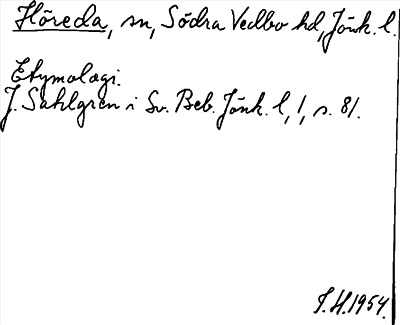 Flöreda, sn, Södra Vedbo hd, Jönk. l.
Etymologi.
J. Sahlgren i Sv. Beb. Jönk. l, 1, s. 81.
J. H. 1954.